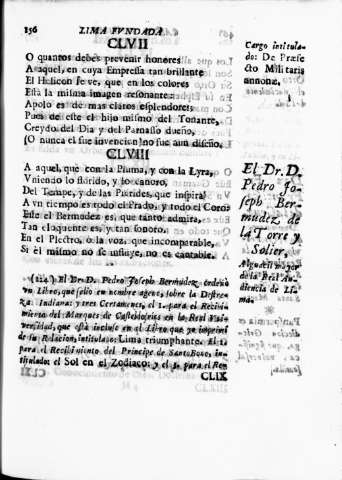 156 LIMA FVNDADA.
CLVII
O quantos debes prevenir honores
A aquel, en cuya Empressa tan brillante
El Helicon se ve, que en los colores
Està la misma imagen resonante:
Apolo es de mas claros esplendores;
Pues de este el hijo mismo del Tonante,
Creydo del Dia y del Parnasso dueño,
(O nunca el fue invencion) no fue aun diseño.
CLVIII
A aquel, que con la Pluma, y con la Lyra,
Vniendo lo florido, y lo canoro,
Del Tempe, y de las Pierides, que inspira
A vn tiempo es todo el Prado, y todo el Coro:
Este el Bermudez es, que tanto admira,
Tan eloquente es, y tan sonoro,
En el Plectro, ò la voz, que incomparable,
Si èl mismo no se influye, no es cantable.
(124.) El Dr. D. Pedro Joseph Bermudez ordenò
vn Libro, que salio en nombre ageno, sobre la Destreza
Indiana: y tres Certamenes, el 1. para el Recibimiento
del Marques de Castelldosrius en la Real Vniversidad,
que està incluso en el Libro que yo imprimi
de su Relacion, intitulado: Lima triumphante. El 2.
para el Recibimiento del Principe de Santo Bono, intitulado:
el Sol en el Zodiaco: y el 3. para el Ren
CLIX
Cargo intitulado:
De Præfecto
Militaris
annonæ.
El Dr. D.
Pedro Joseph
Bermudez,
de
la Torre y
Solier,
Alguacil mayor
de la Real Audiencia
de Lima